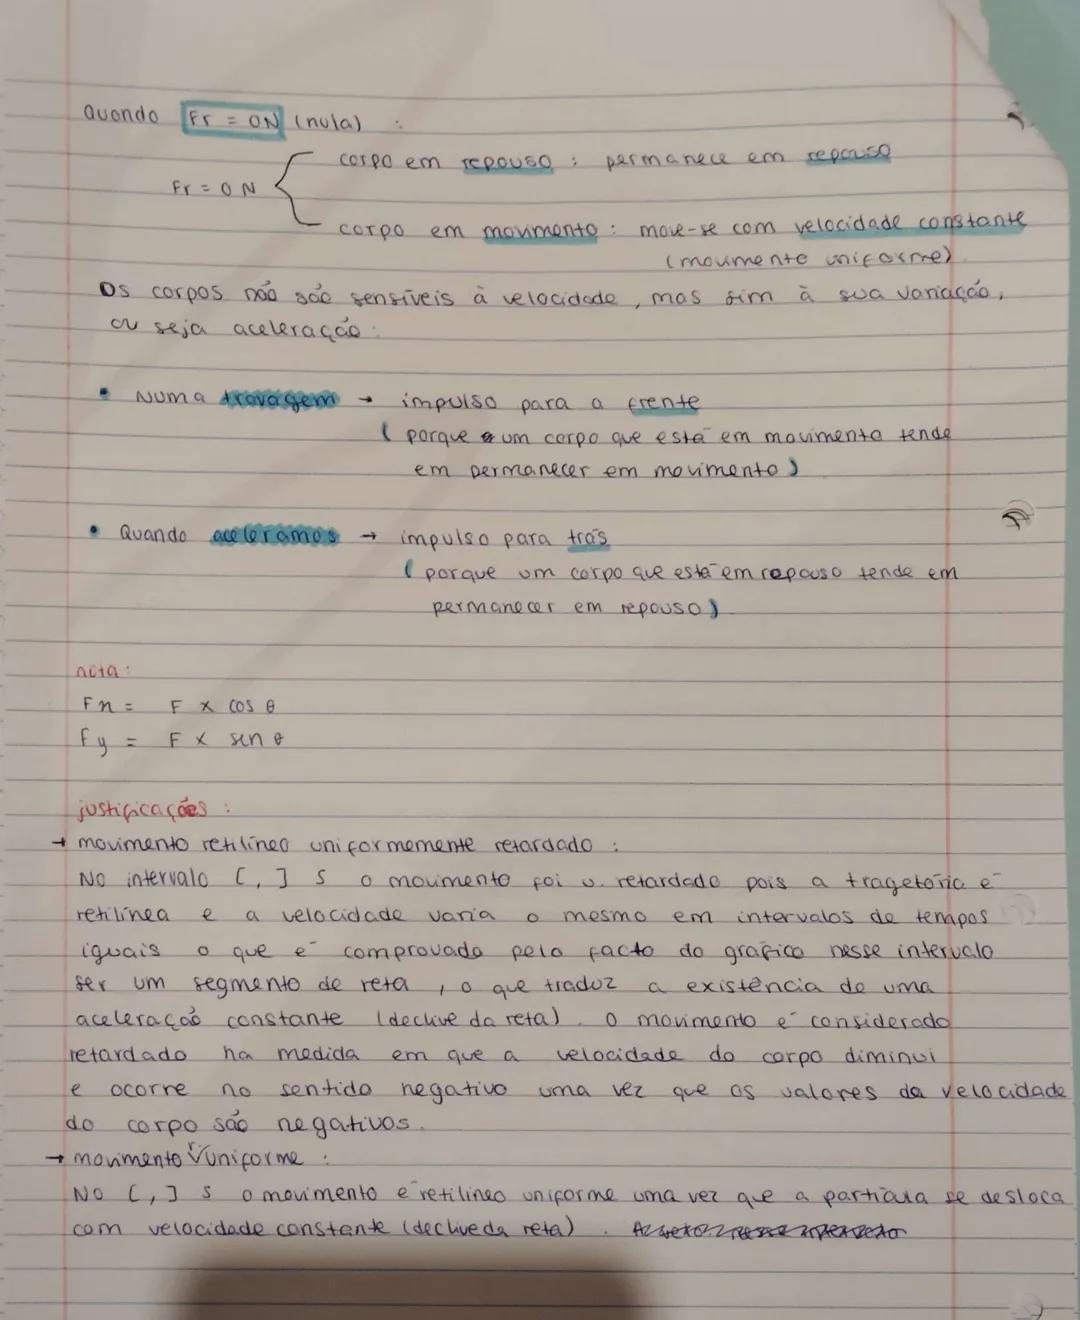 Quando Fr = 0N (nula) :
corpo em repouso : permanece em repouso
Fr = 0 N
corpo em movimento : move-se com velocidade constante
(movimento uniforme)
Os corpos não são sensíveis à velocidade, mas sim à sua variação,
ou seja aceleração:
• Numa travagem → impulso para a frente
( porque um corpo que está em movimento tende
em permanecer em movimento )
• Quando aceleramos → impulso para trás
( porque um corpo que está em repouso tende em
permanecer em repouso )
nota:
Fx = F x cos θ
Fy = F x sen θ
justificações :
→ movimento retilíneo uniformemente retardado :
No intervalo [ , ] s o movimento foi u. retardado pois a tragetória é
retilínea e a velocidade varia o mesmo em intervalos de tempos
iguais o que é comprovado pelo facto do gráfico nesse intervalo
ser um segmento de reta , o que traduz a existência de uma
aceleração constante (declive da reta) . O movimento é considerado
retardado na medida em que a velocidade do corpo diminui
e ocorre no sentido negativo uma vez que os valores da velocidade
do corpo são negativos.
→ movimento r uniforme :
No [ , ] s o movimento é retilíneo uniforme uma vez que a partícula se desloca
com velocidade constante (declive da reta) .